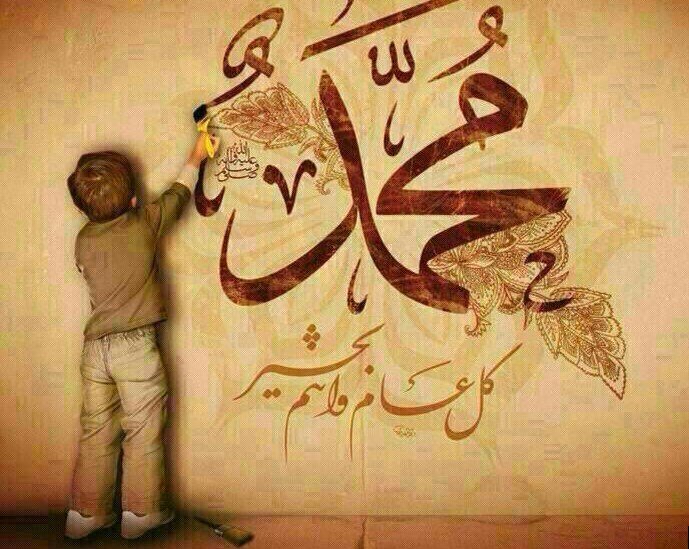 مُحَمَّدٌ
صلى الله عليه وآله وسلم
كل عام وأنتم بخير